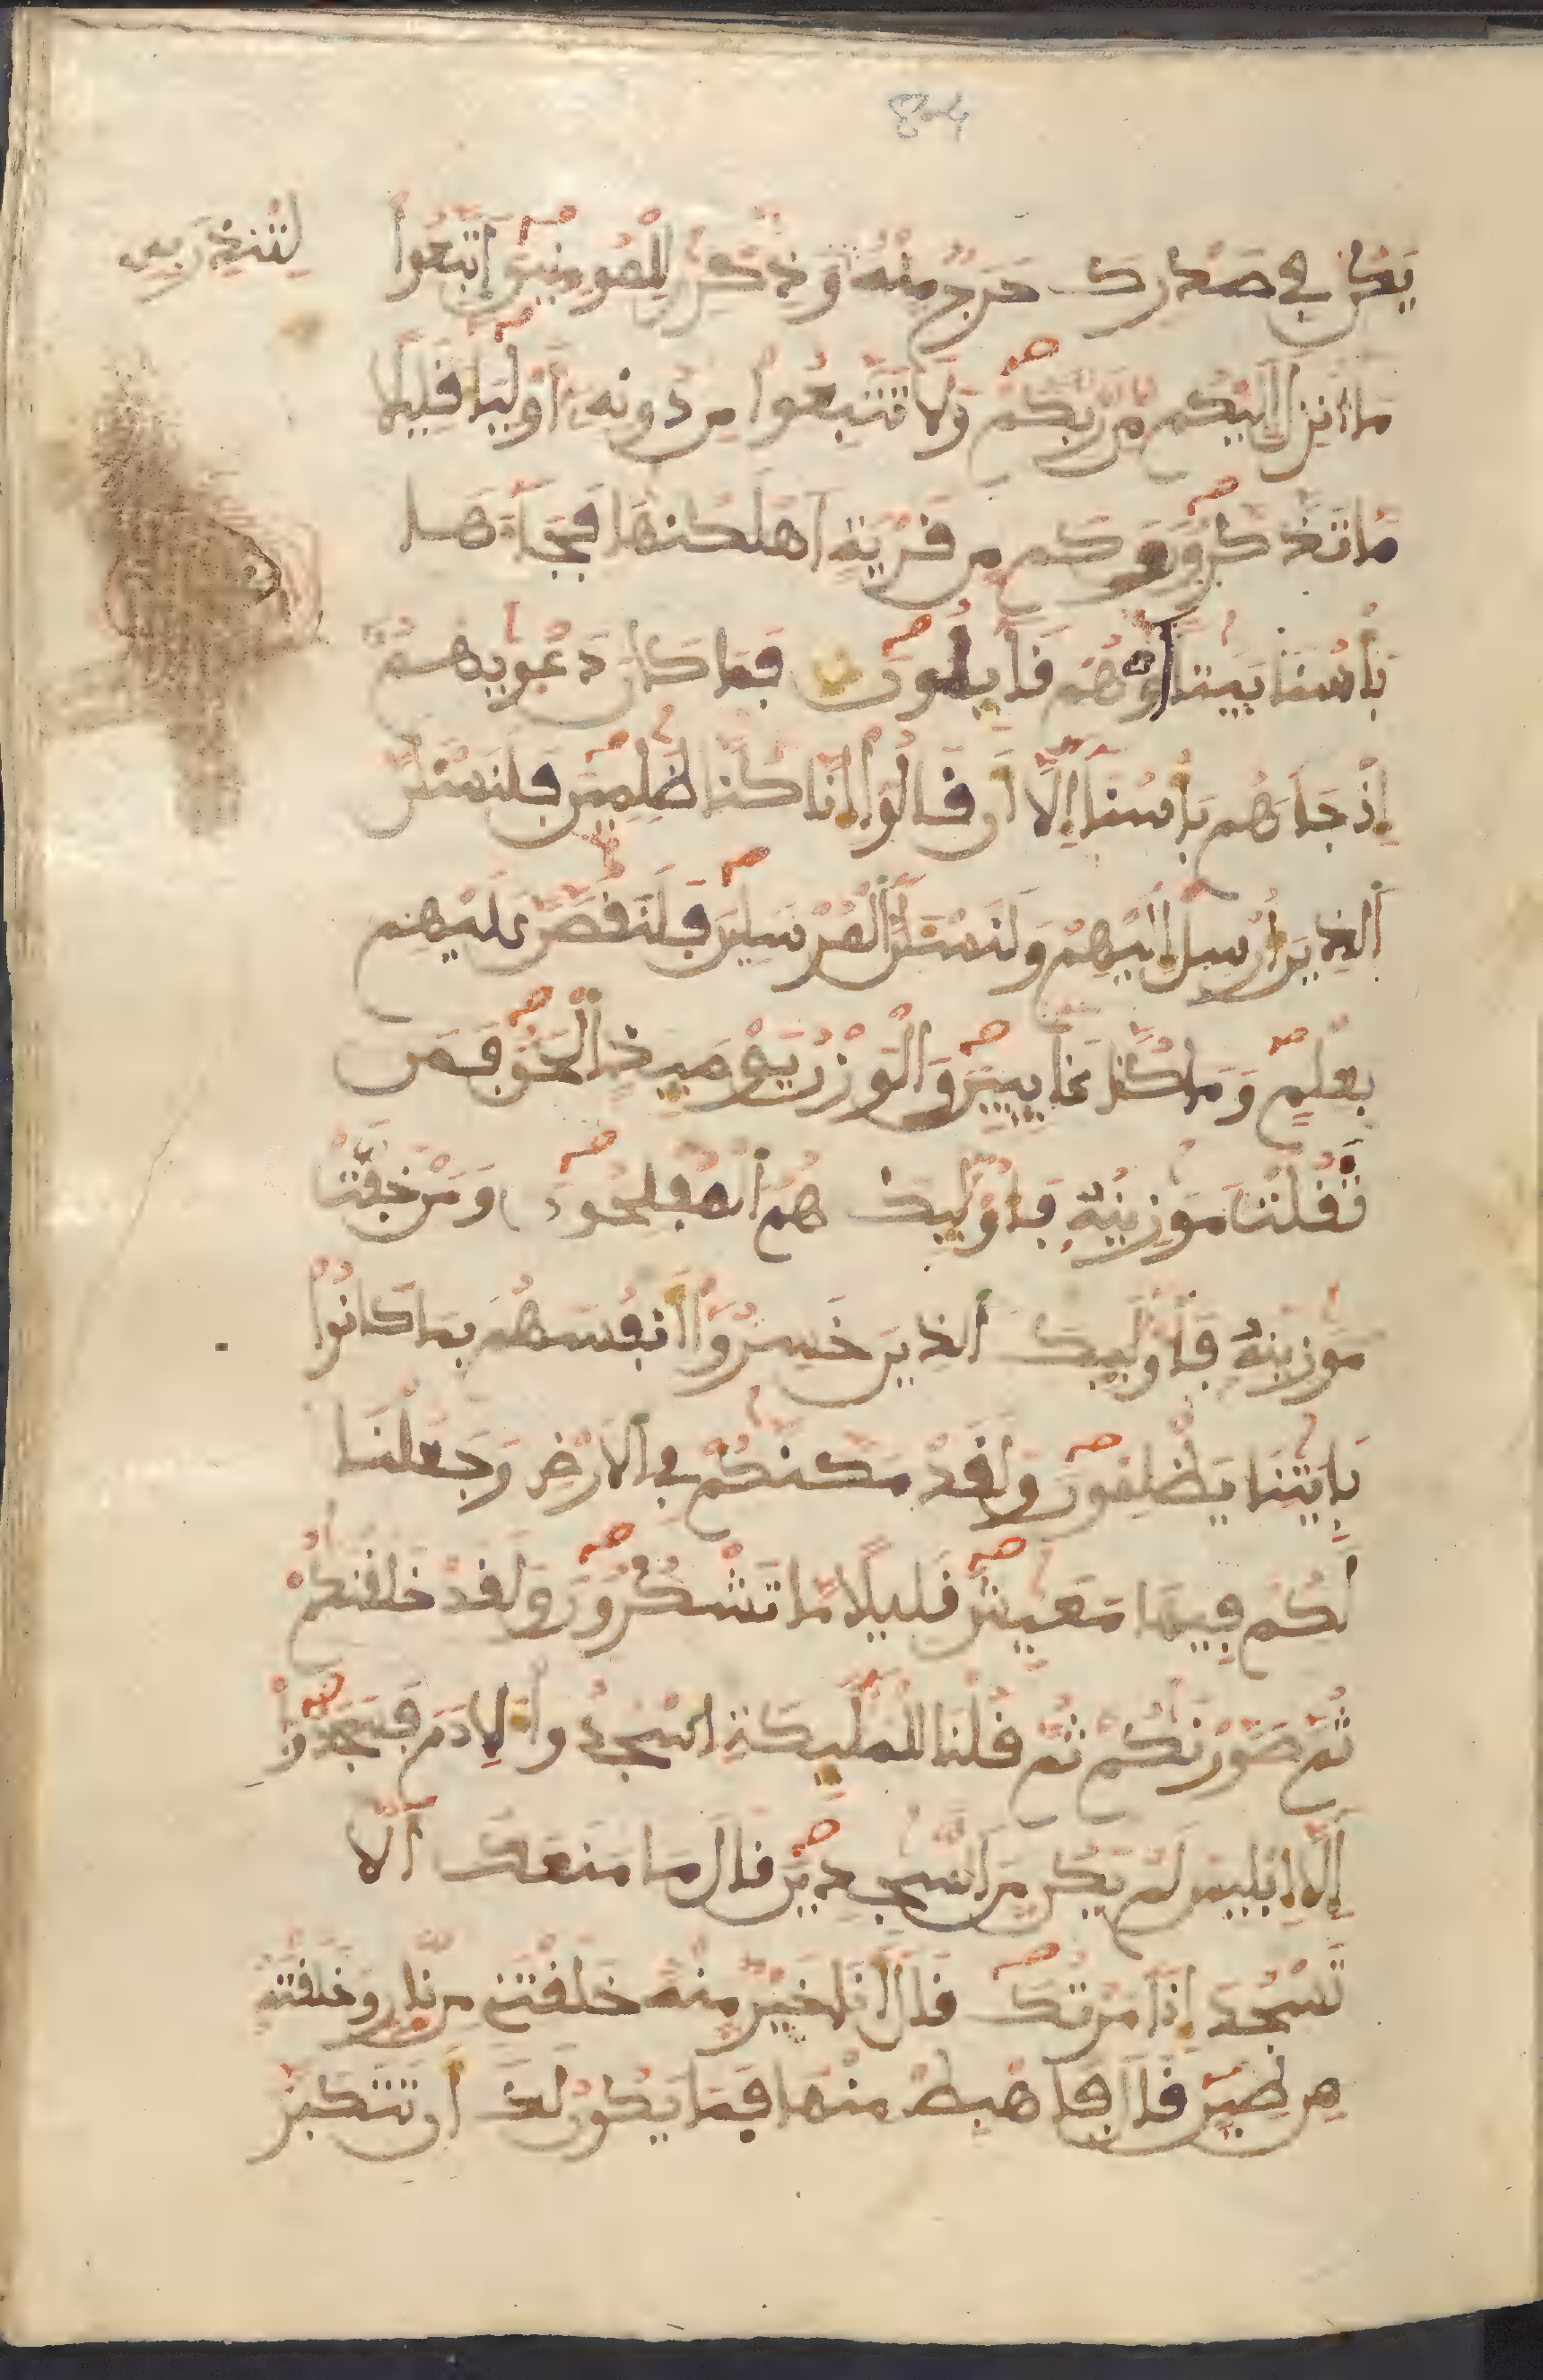 لِتُنذِرَ بِهِ
يَكُن فِي صَدْرِكَ حَرَجٌ مِّنْهُ وَذِكْرَىٰ لِلْمُومِنِينَ اَتَّبِعُواْ
مَا أُنزِلَ إِلَيْكُم مِّن رَّبِّكُمْ وَلَا تَتَّبِعُواْ مِن دُونِهِ أَوْلِيَا قَلِيلًا
مَّا تَذَّكَّرُونَ وَكَم مِّن قَرْيَةٍ أَهْلَكْنَٰهَا فَجَاءَهَا
بَأْسُنَا بَيَٰتًا أَوْ هُمْ قَايِلُونَ فَمَا كَانَ دَعْوَيٰهُمْ
إِذْ جَاءَهُم بَأْسُنَا إِلَّا أَن قَالُواْ إِنَّا كُنَّا ظَٰلِمِينَ فَلَنَسْـَٔلَنَّ
اَلذِينَ أُرْسِلَ إِلَيْهِمْ وَلَنَسْـَٔلَنَّ اَلْمُرْسَلِينَ فَلَنَقُصَّنَّ عَلَيْهِم
بِعِلْمٍ وَمَا كُنَّا غَايِبِينَ وَالْوَزْنُ يَوْمَيِذٍ اِلْحَقُّ فَمَن
ثَقُلَتْ مَوَٰزِينُهُ فَأُوْلَٰيِكَ هُمُ اَلْمُفْلِحُونَ وَمَنْ خَفَّتْ
مَوَٰزِينُهُ فَأُوْلَٰيِكَ اَلذِينَ خَسِرُواْ أَنفُسَهُم بِمَا كَانُواْ
بِـَٔايَٰتِنَا يَظْلِمُونَ وَلَقَدْ مَكَّنَّٰكُمْ فِي اِلَارْضِ وَجَعَلْنَا
لَكُمْ فِيهَا مَعَٰيِشَ قَلِيلًا مَّا تَشْكُرُونَ وَلَقَدْ خَلَقْنَٰكُمْ
ثُمَّ صَوَّرْنَٰكُمْ ثُمَّ قُلْنَا لِلْمَلَٰيِكَةِ اِسْجُدُواْ لِأَدَمَ فَسَجَدُواْ
إِلَّا إِبْلِيسَ لَمْ يَكُن مِّنَ اَلسَّٰجِدِينَ قَالَ مَا مَنَعَكَ أَلَّا
تَسْجُدَ إِذَ اَمَرْتُكَ قَالَ أَنَا خَيْرٌ مِّنْهُ خَلَقْتَنِي مِن نَّارٍ وَخَلَقْتَهُ
مِن طِينٍ قَالَ فَاهْبِطْ مِنْهَا فَمَا يَكُونُ لَكَ أَن تَتَكَبَّرَ